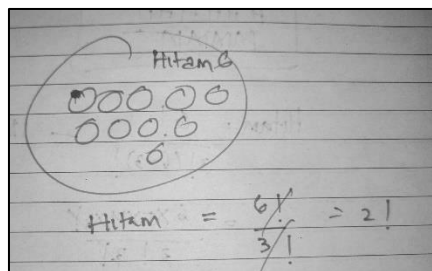 Hitam 6
Hitam = 6!/3! = 2!